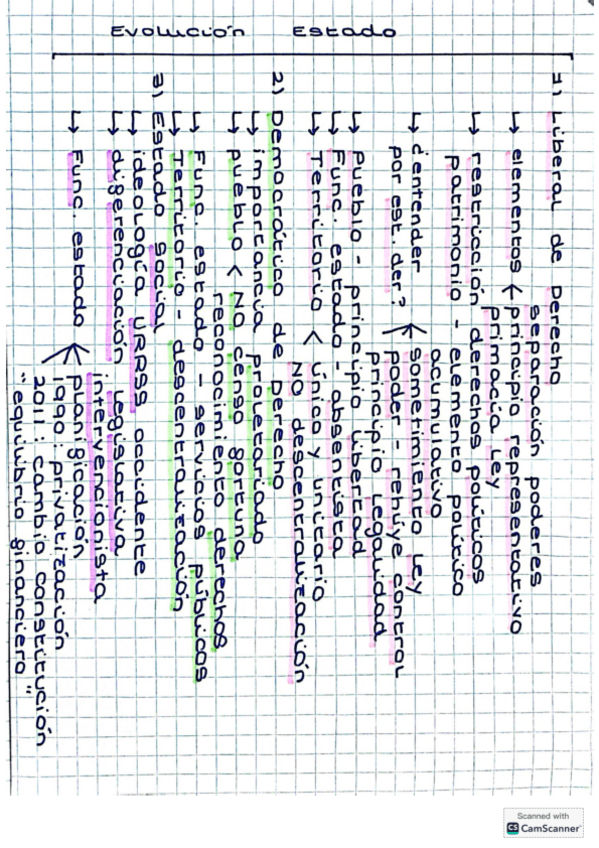 Evolución Estado
1) Liberal de Derecho
↳ elementos
separación poderes
principio representativo
primacía ley
↳ restricción derechos políticos
patrimonio - elemento político
acumulativo
↳ d'entender
por est. der?
sometimiento ley
poder - rehúye control
principio legalidad
↳ pueblo - principio libertad
↳ Func. estado - absentista
↳ Territorio < único y unitario
NO descentralización
2) Democrático de Derecho
↳ importancia proletariado
↳ pueblo < NO censo fortuna
reconocimiento derechos
↳ Func. estado - servicios públicos
↳ Territorio - descentralización
3) Estado social
↳ ideología URRSS occidente
↳ diferenciación legislativa
↳ Func. estado
intervencionista
planificación
1990: privatización
2011: cambio constitución
"equilibrio financiero"
Scanned with
CS CamScanner